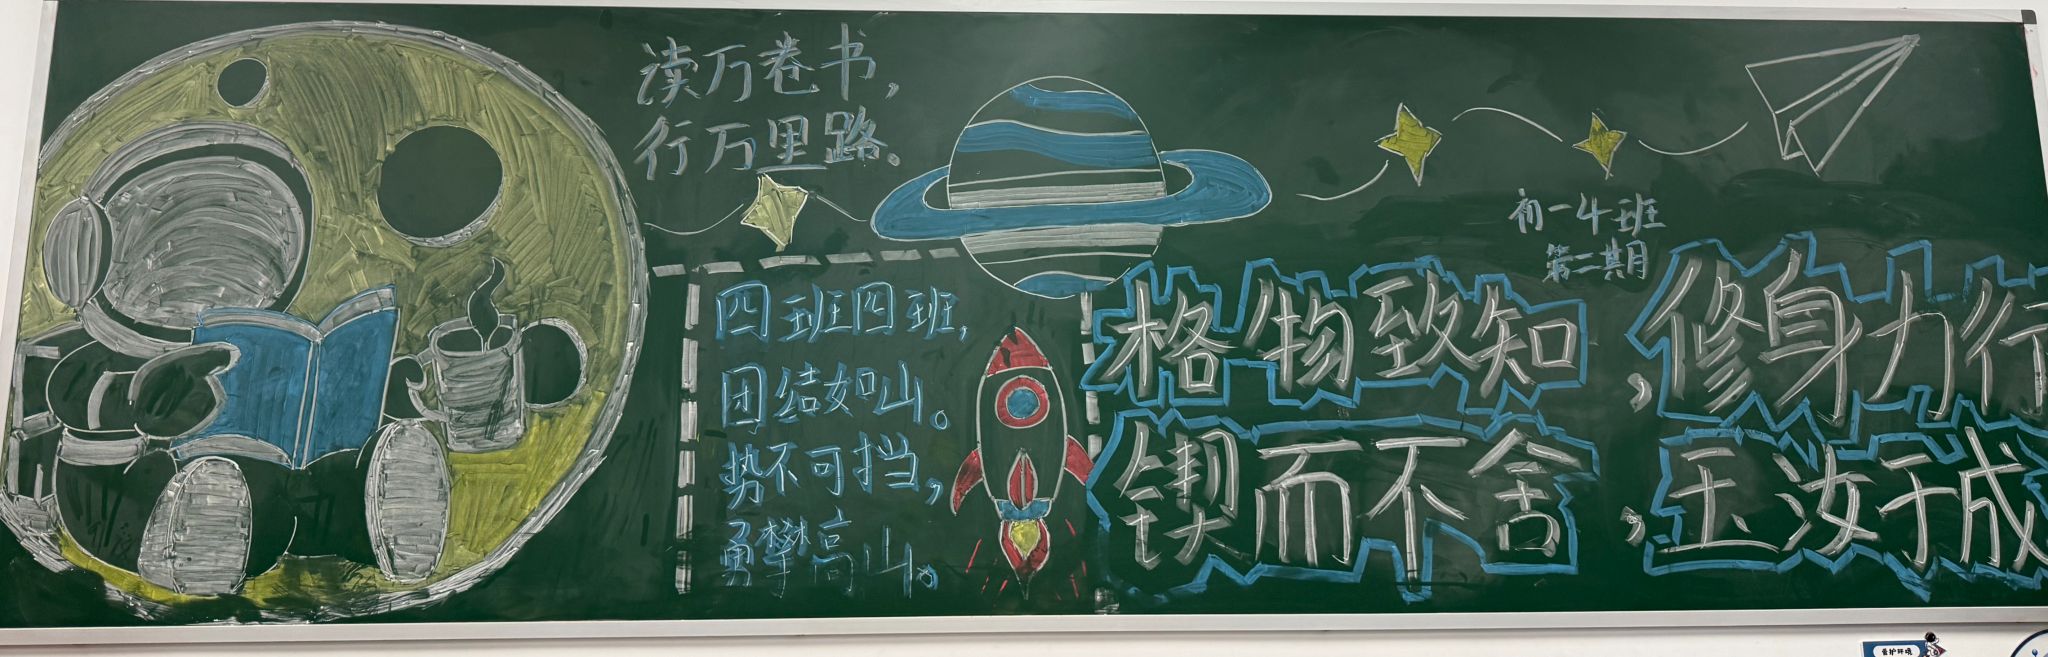 读万卷书，
行万里路。
初一4班
第二期月
四班四班，
团结如山。
势不可挡，
勇攀高山。
格物致知，修身力行
锲而不舍，玉汝于成
爱护环境